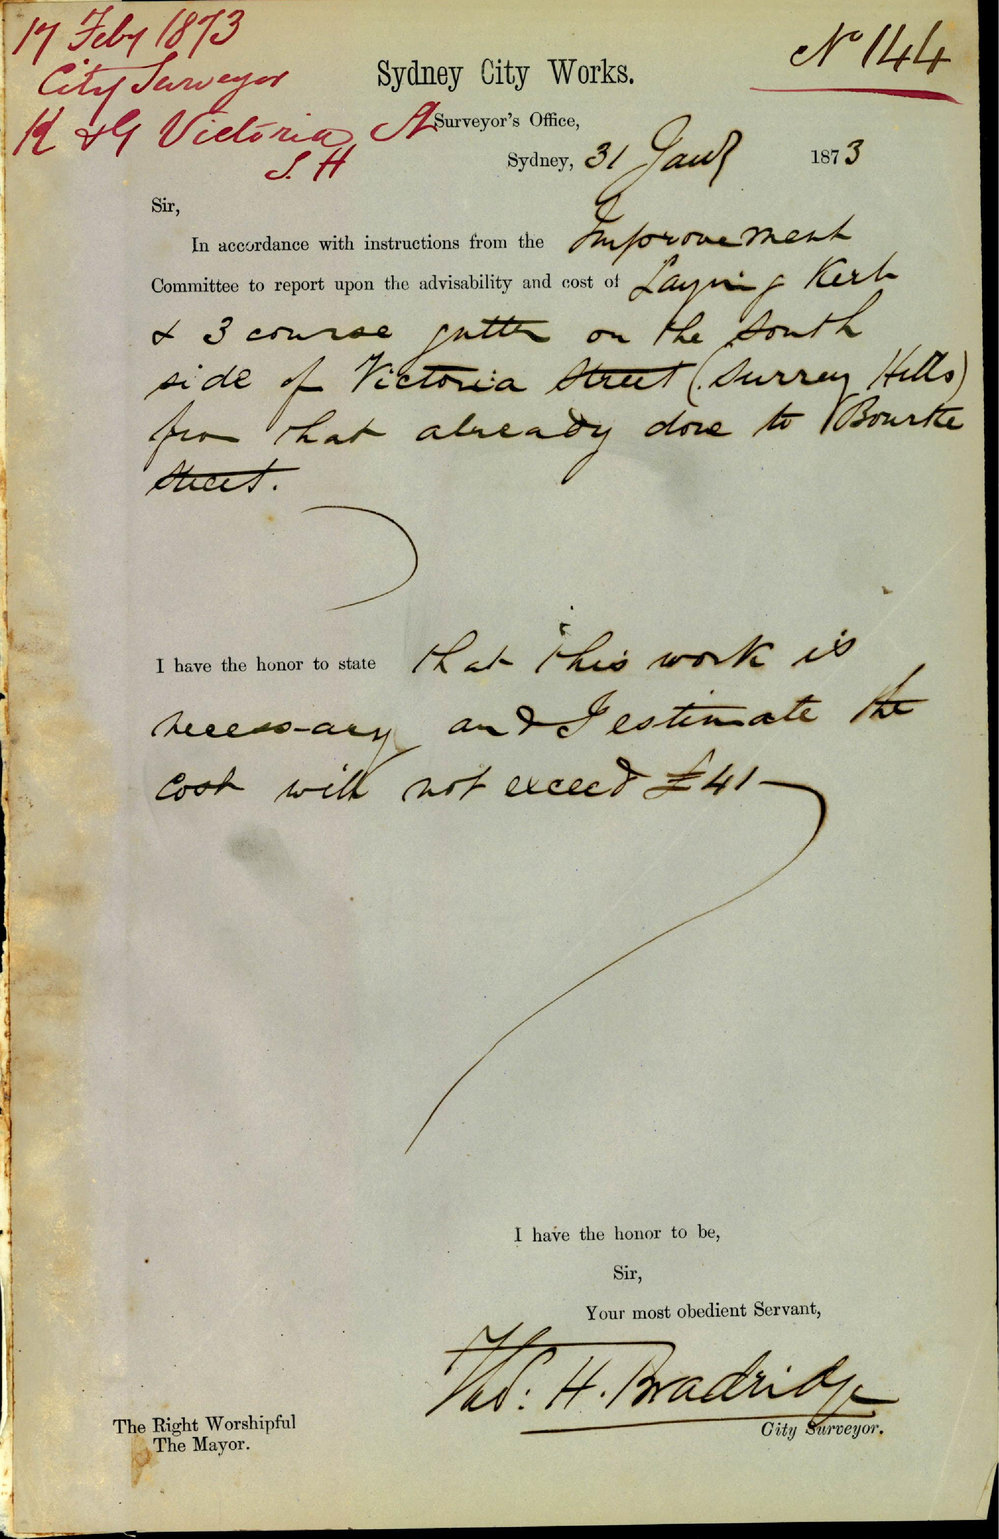 17 Feby 1873
City Surveyor
K & G Victoria St
S. H
No 144
Sydney City Works.
Surveyor's Office,
Sydney, 31 Jany 1873
Sir,
In accordance with instructions from the Improvement
Committee to report upon the advisability and cost of Laying Kerb
& 3 course gutter on the South
side of Victoria Street (Surrey Hills)
from that already done to Bourke
Street.
I have the honor to state that this work is
necessary and I estimate the
cost will not exceed £41
I have the honor to be,
Sir,
Your most obedient Servant,
Thos: H. Bradridge
City Surveyor.
The Right Worshipful
The Mayor.